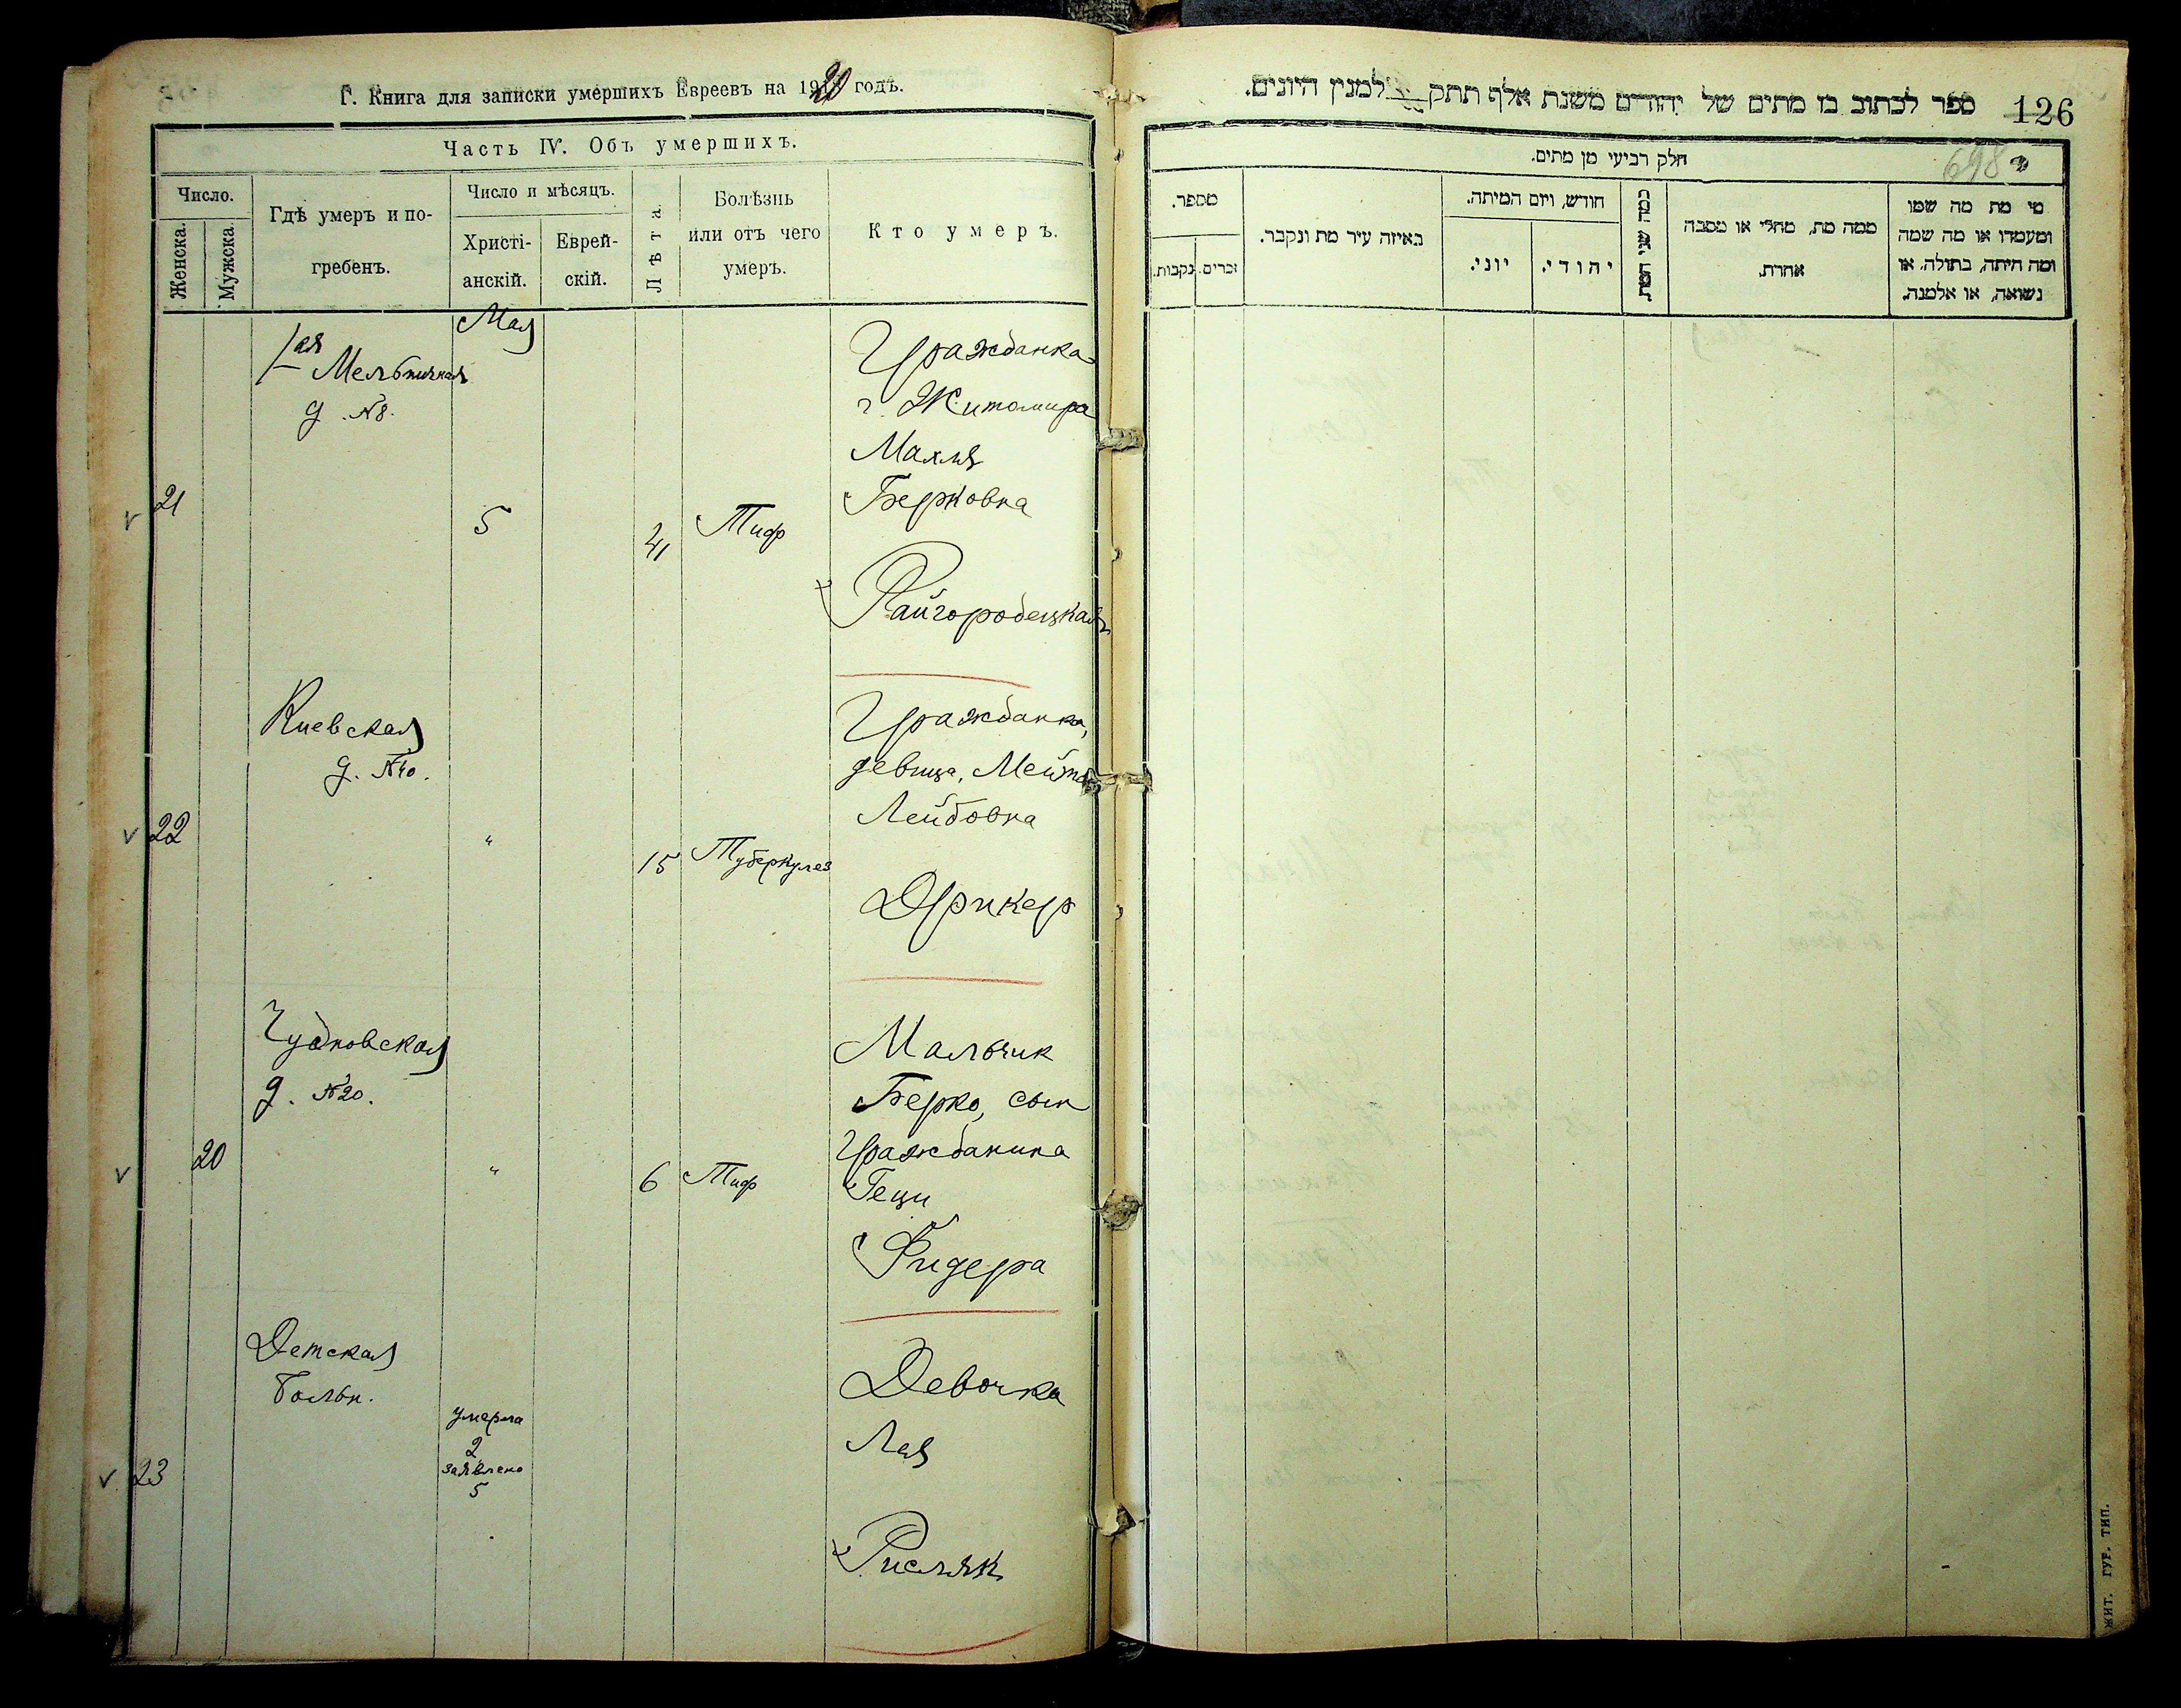 Г. Книга для записки умершихъ Евреевъ на 1920 годъ.
Часть IV. Объ умершихъ.
Число.
Женска.
Мужска.
Гдѣ умеръ и по-
гребенъ.
Число и мѣсяцъ.
Христі-
анскій.
Еврей-
скій.
Лѣта.
Болѣзнь
или отъ чего
умеръ.
Кто умеръ.
Мая
21
1ая
Мельничная
д. №8.
5
41
Тиф
Гражданка
г. Житомира
Махля
Берковна
Райгородецкая
22
Киевская
д. №40.
"
15
Туберкулез
Гражданка,
девица, Мейта
Лейбовна
Дрикер
20
Чудновская
д. №20.
"
6
Тиф
Мальчик
Берко, сын
Гражданина
Геци
Фидера
23
Детская
больн.
умерла
2
заявлено
5
Девочка
Лая
Рисляк
ספר לכתוב בו מתים של יהודים משנת אלף תתק למנין היונים.
126
698
חלק רביעי מן מתים.
מספר.
זכרים.
נקבות.
באיזה עיר מת ונקבר.
חודש, ויום המיתה.
יוני.
יהודי.
כמה שני המת.
ממה מת, מחלי או מסבה
אחרת.
מי מת מה שמו
ומעמדו או מה שמה
ומה היתה, בתולה, או
נשואה, או אלמנה.
ЖИТ. ГУБ. ТИП.